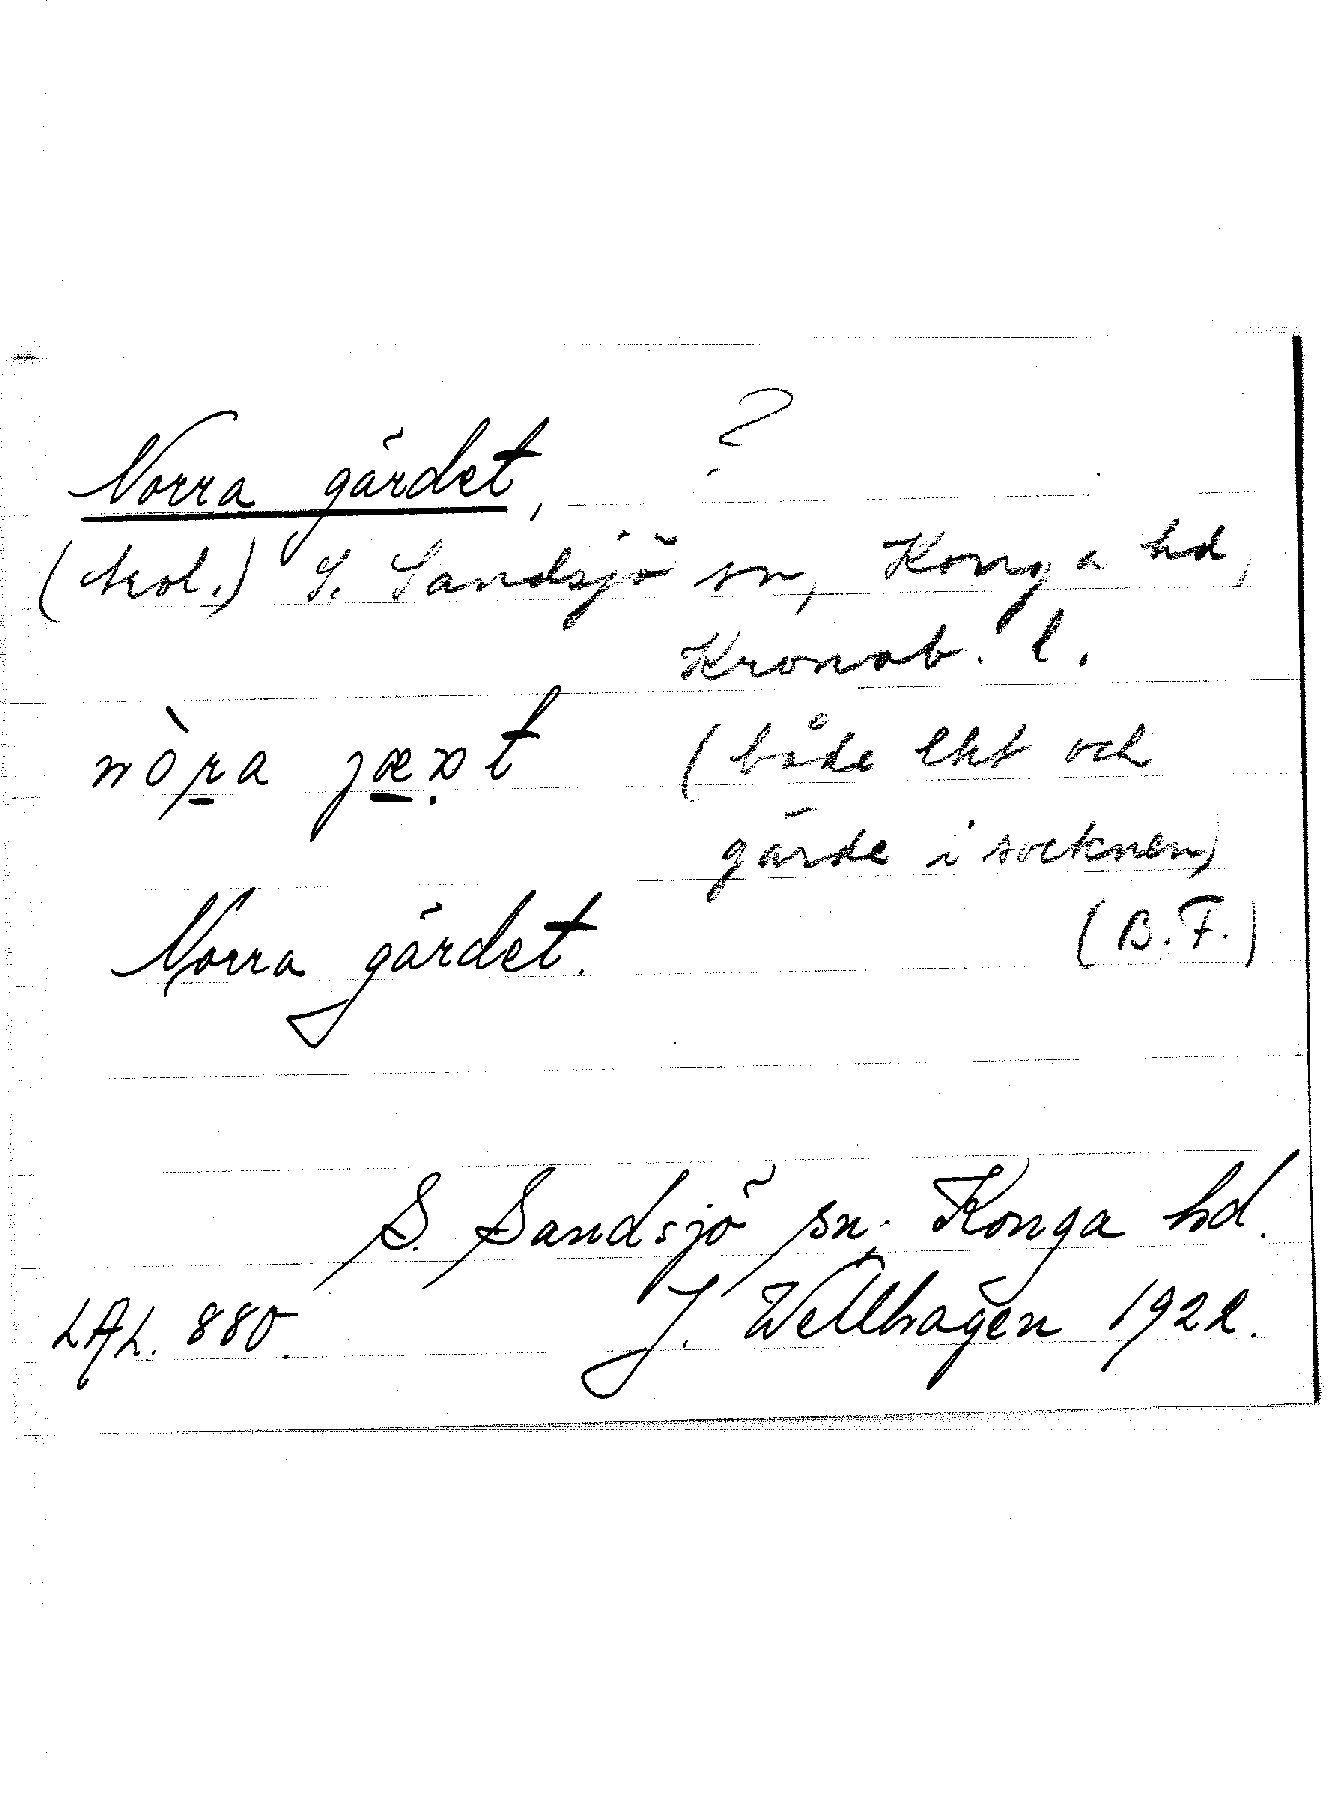 Norra gärdet, ?
(skol.) S. Sandsjö sn, Konga hd,
Kronob. l.
nòra jæxt (både ekt och
gärde i socknen)
Norra gärdet. (B.F.)
S. Sandsjö sn. Konga hd.
LAL. 880. J. Wellhagen 1922.